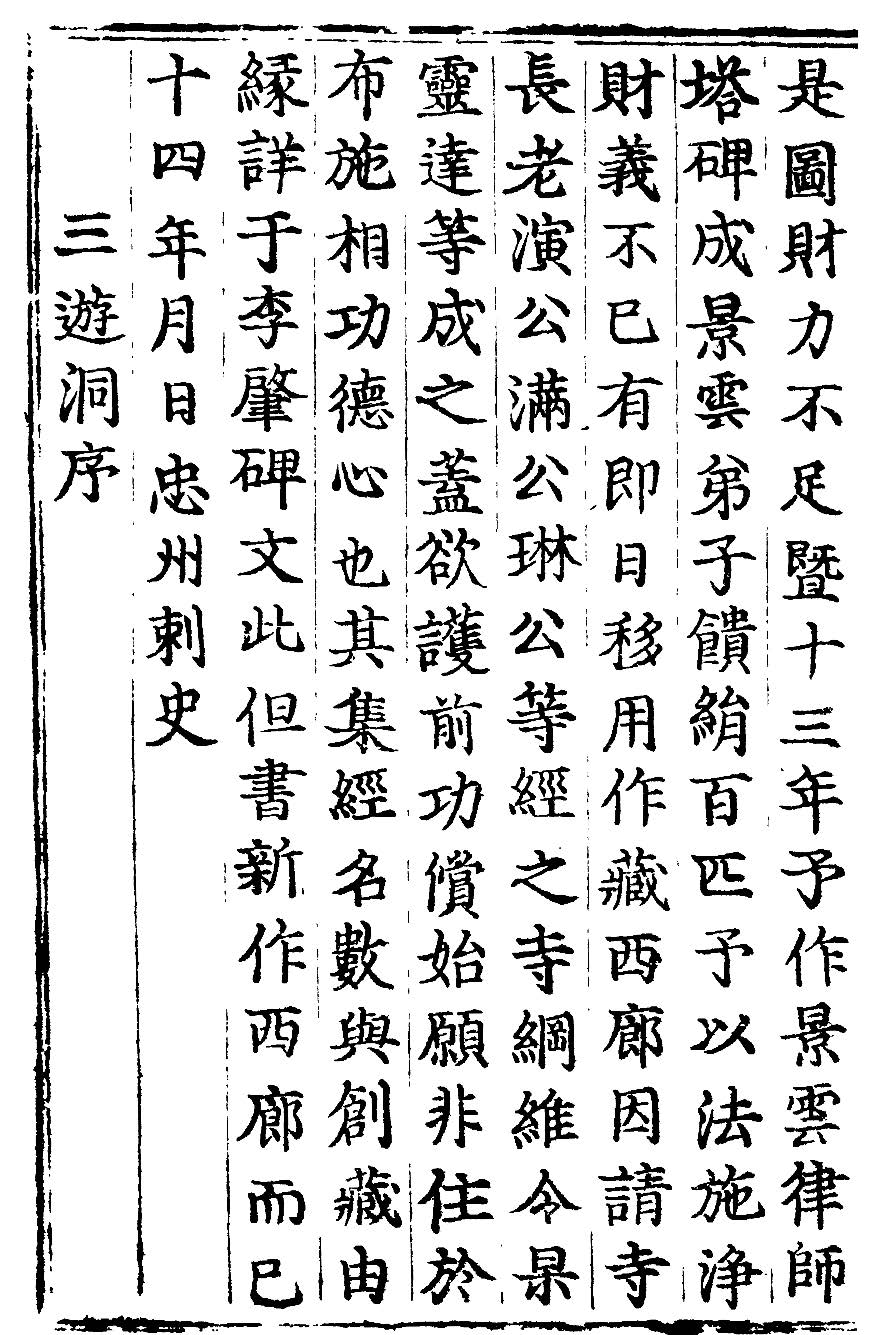 是圖財力不足暨十三年予作景雲律師
塔碑成景雲弟子饋絹百匹予以法施淨
財義不已有即日移用作藏西廊因請寺
長老演公滿公琳公等經之寺綱維令杲
靈達等成之蓋欲護前功償始願非住於
布施相功德心也其集經名數與創藏由
緣詳于李肇碑文此但書新作西廊而已
十四年月日忠州刺史
三遊洞序